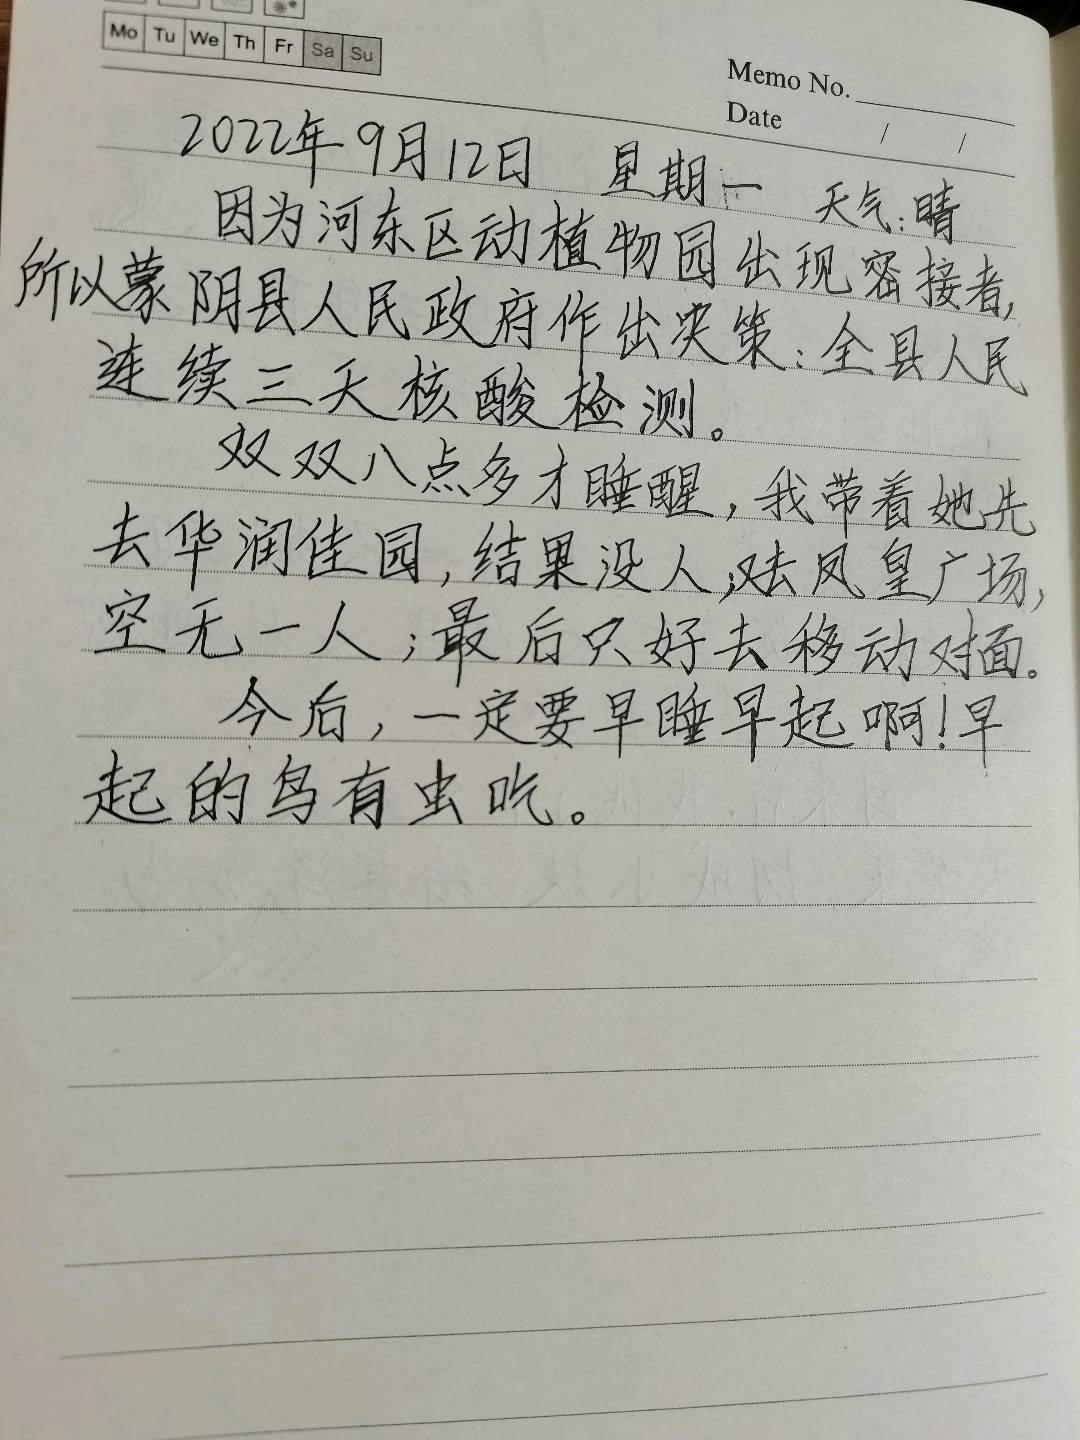 Mo Tu We Th Fr Sa Su
Memo No.
Date / /
2022年9月12日 星期一 天气:晴
因为河东区动植物园出现密接者,
所以蒙阴县人民政府作出决策:全县人民
连续三天核酸检测。
双双八点多才睡醒,我带着她先
去华润佳园,结果没人;又去凤皇广场,
空无一人;最后只好去移动对面。
今后,一定要早睡早起啊!早
起的鸟有虫吃。